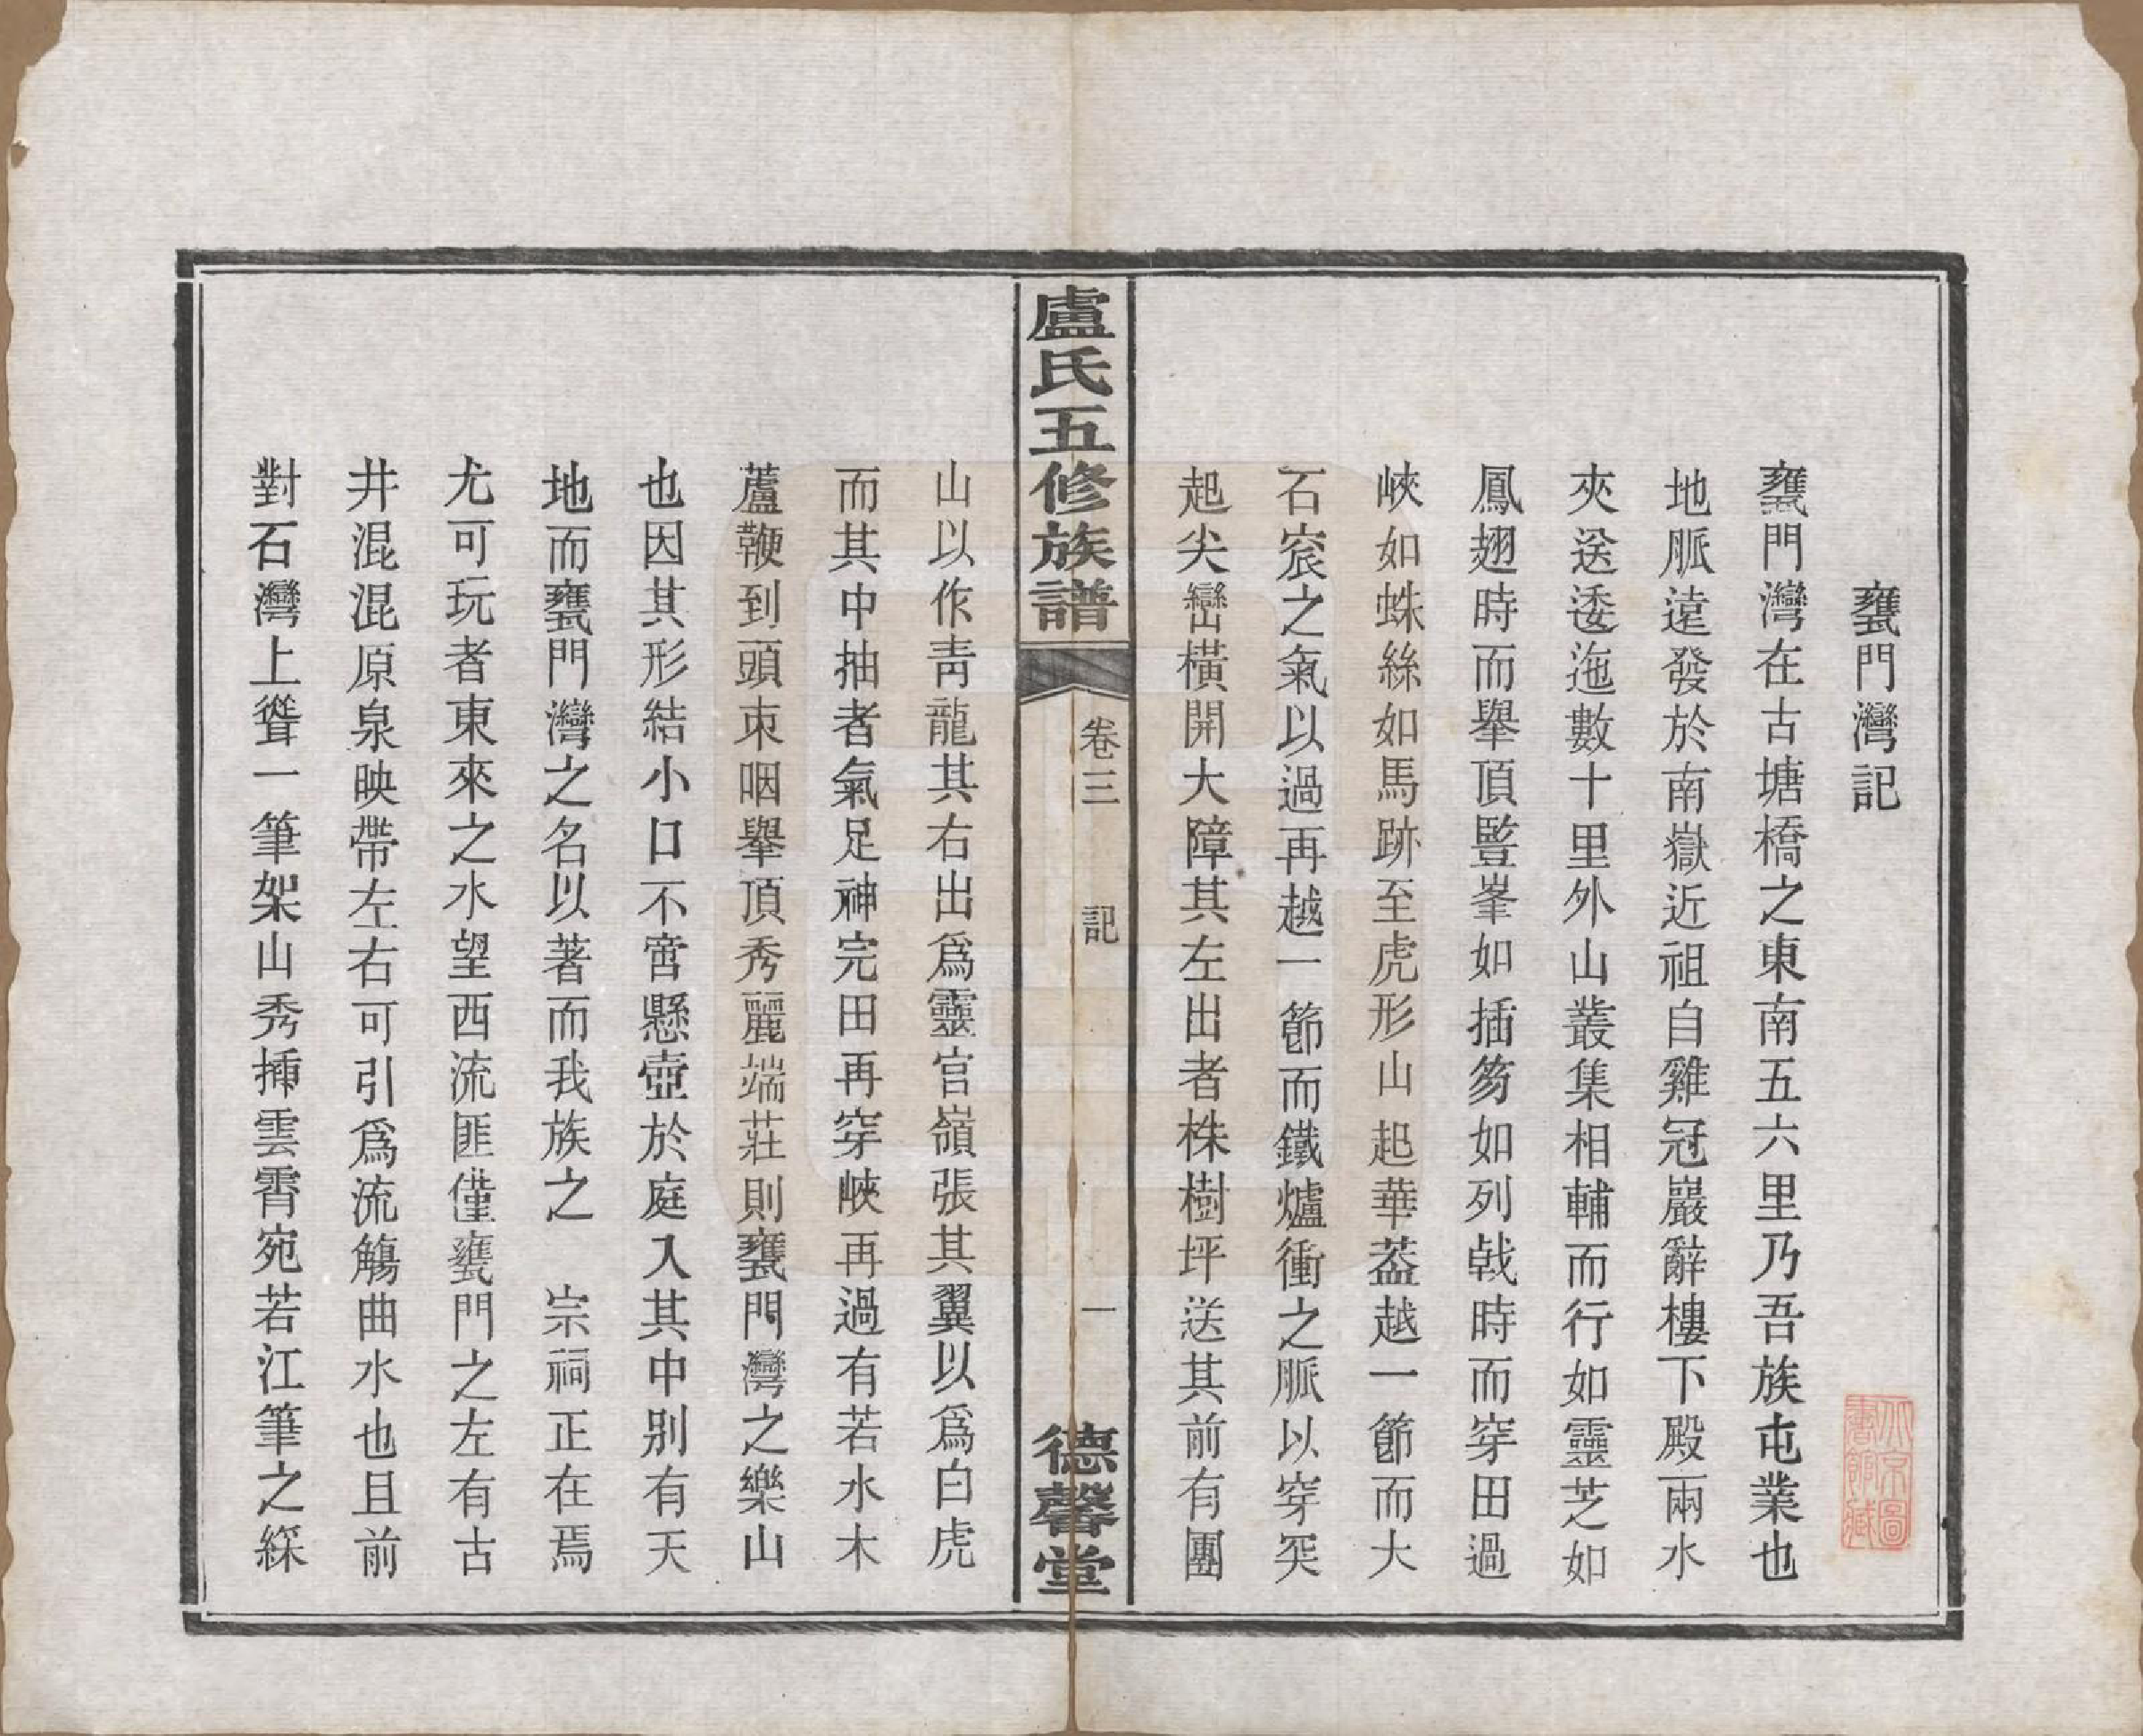 甕門灣記
甕門灣在古塘橋之東南五六里乃吾族屯業也
地脈遠發於南嶽近祖自雞冠巖辭樓下殿兩水
夾送逶迤數十里外山叢集相輔而行如靈芝如
鳳翅時而舉頂豎峯如插笏如列戟時而穿田過
峽如蛛絲如馬跡至虎形山起華葢越一節而大
石㝔之氣以過再越一節而鐵爐衝之脈以穿突
起尖巒橫開大障其左出者株樹坪送其前有團
盧氏五修族譜
卷三
記
一
德馨堂
山以作靑龍其右出爲靈官嶺張其翼以爲白虎
而其中抽者氣足神完田再穿峽再過有若水木
蘆鞭到頭束咽舉頂秀麗端莊則甕門灣之樂山
也因其形結小口不啻懸壺於庭入其中別有天
地而甕門灣之名以著而我族之　宗祠正在焉
尤可玩者東來之水望西流匪僅甕門之左有古
井混混原泉映帶左右可引爲流觴曲水也且前
對石灣上聳一筆架山秀揷雲霄宛若江筆之綵
大不圖書館藏